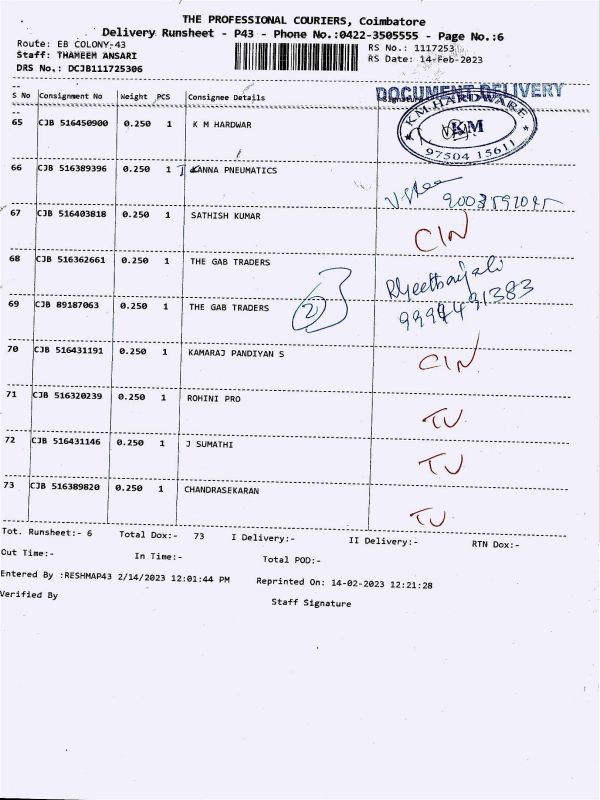 THE PROFESSIONAL COURIERS, Coimbatore
Delivery Runsheet - P43 - Phone No.:0422-3505555 - Page No.:6
Route: EB COLONY-43
RS No.: 1117253
Staff: THAMEEM ANSARI
RS Date: 14-Feb-2023
DRS No.: DCJB111725306
S No Consignment No Weight PCS Consignee Details Signature
DOCUMENT DELIVERY
65 CJB 516450900 0.250 1 K M HARDWAR
K.M. HARDWARE
KM
97504 15611
66 CJB 516389396 0.250 1 KANNA PNEUMATICS
67 CJB 516403818 0.250 1 SATHISH KUMAR
CIN
68 CJB 516362661 0.250 1 THE GAB TRADERS
69 CJB 89187063 0.250 1 THE GAB TRADERS
2
70 CJB 516431191 0.250 1 KAMARAJ PANDIYAN S
CIN
71 CJB 516320239 0.250 1 ROHINI PRO
TU
72 CJB 516431146 0.250 1 J SUMATHI
TU
73 CJB 516389820 0.250 1 CHANDRASEKARAN
TU
Tot. Runsheet:- 6 Total Dox:- 73 I Delivery:- II Delivery:- RTN Dox:-
Out Time:- In Time:- Total POD:-
Entered By :RESHMAP43 2/14/2023 12:01:44 PM Reprinted On: 14-02-2023 12:21:28
Verified By Staff Signature